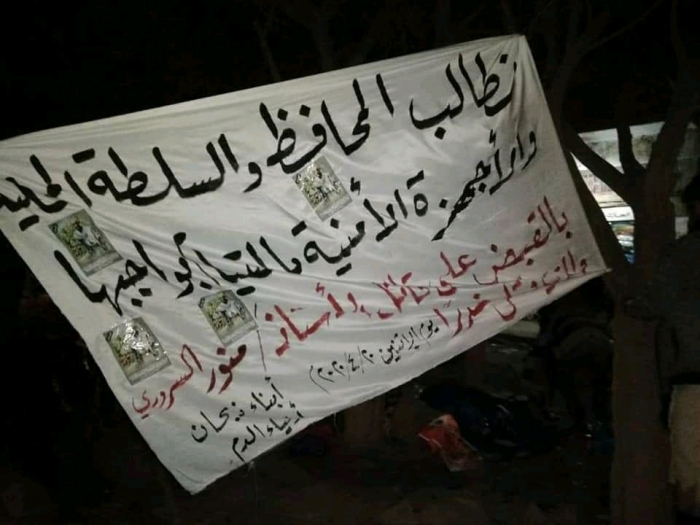 نطالب المحافظ والسلطة المحلية
والأجهزة الأمنية بالقيام بواجبها
بالقبض على قاتل الأستاذ منور السروري
يوم الاثنين ٢٠٢٠/٤/٢٠م
أبناء ذبحان
أولياء الدم